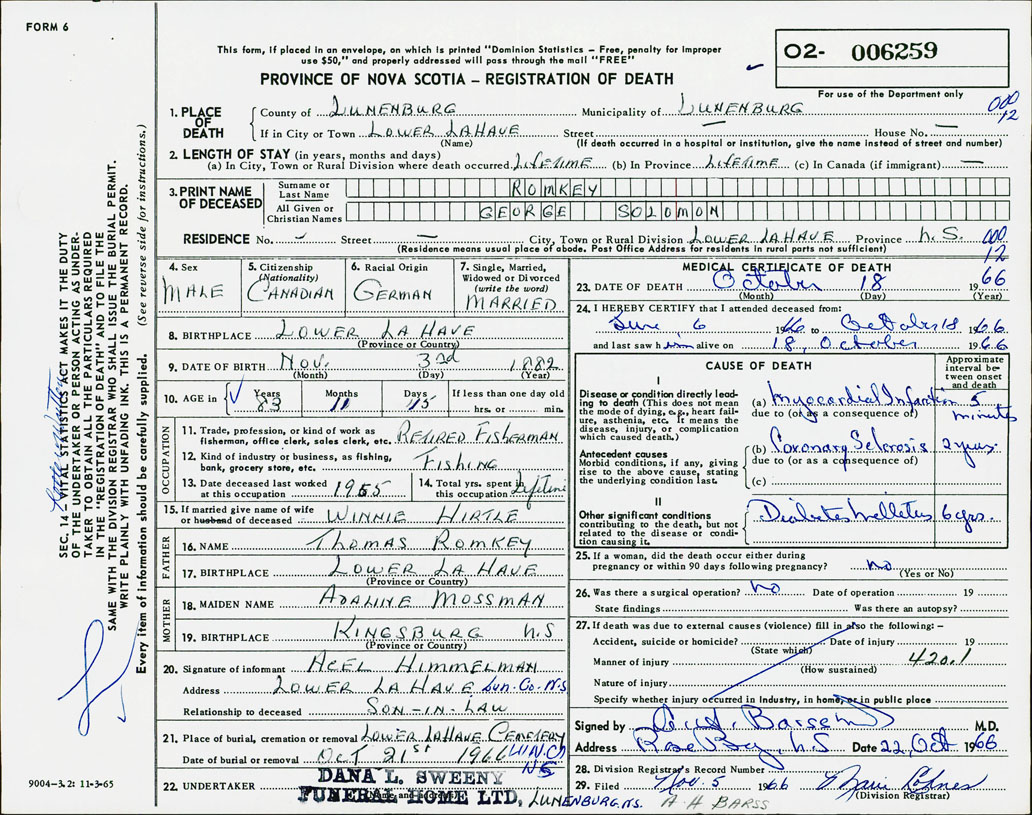 FORM 6
This form, if placed in an envelope, on which is printed "Dominion Statistics – Free, penalty for improper
use $50," and properly addressed will pass through the mail "FREE"
PROVINCE OF NOVA SCOTIA – REGISTRATION OF DEATH
O2- 006259
For use of the Department only
000
12
1. PLACE OF DEATH
County of LUNENBURG Municipality of LUNENBURG
If in City or Town LOWER LAHAVE Street — House No. —
(Name) (If death occurred in a hospital or institution, give the name instead of street and number)
2. LENGTH OF STAY (in years, months and days)
(a) In City, Town or Rural Division where death occurred LIFETIME (b) In Province LIFETIME (c) In Canada (if immigrant) —
3. PRINT NAME OF DECEASED
Surname or Last Name ROMKEY
All Given or Christian Names GEORGE SOLOMON
RESIDENCE No. – Street – City, Town or Rural Division LOWER LAHAVE Province N.S.
(Residence means usual place of abode. Post Office Address for residents in rural parts not sufficient)
000
12
4. Sex
MALE
5. Citizenship
(Nationality)
CANADIAN
6. Racial Origin
GERMAN
7. Single, Married,
Widowed or Divorced
(write the word)
MARRIED
8. BIRTHPLACE LOWER LA HAVE
(Province or Country)
9. DATE OF BIRTH NOV. 3rd 1882
(Month) (Day) (Year)
10. AGE in Years Months Days If less than one day old
83 11 15 hrs. or min.
OCCUPATION
11. Trade, profession, or kind of work as
fisherman, office clerk, sales clerk, etc. RETIRED FISHERMAN
12. Kind of industry or business, as fishing,
bank, grocery store, etc. FISHING
13. Date deceased last worked
at this occupation 1955
14. Total yrs. spent in
this occupation Lifetime
15. If married give name of wife
or husband of deceased WINNIE HIRTLE
FATHER
16. NAME THOMAS ROMKEY
17. BIRTHPLACE LOWER LA HAVE
(Province or Country)
MOTHER
18. MAIDEN NAME ADALINE MOSSMAN
19. BIRTHPLACE KINGSBURG N.S
(Province or Country)
20. Signature of informant ACEL HIMMELMAN
Address LOWER LA HAVE Lun. Co. N.S
Relationship to deceased SON-IN-LAW
21. Place of burial, cremation or removal LOWER LAHAVE CEMETERY
Date of burial or removal OCT 21st 1966
NS
22. UNDERTAKER DANA L. SWEENY
FUNERAL HOME LTD, LUNENBURG. N.S.
MEDICAL CERTIFICATE OF DEATH
23. DATE OF DEATH October 18 1966
(Month) (Day) (Year)
24. I HEREBY CERTIFY that I attended deceased from:
June, 6 1966 to October 18 1966
and last saw him alive on 18, October 1966
CAUSE OF DEATH
Approximate
interval between onset
and death
I
Disease or condition directly leading to death (This does not mean
the mode of dying, e.g., heart failure, asthenia, etc. It means the
disease, injury, or complication
which caused death.)
(a) Myocardial Infarction 5 minutes
due to (or as a consequence of)
Antecedent causes
Morbid conditions, if any, giving
rise to the above cause, stating
the underlying condition last.
(b) Coronary Sclerosis 2 years
due to (or as a consequence of)
(c)
II
Other significant conditions
contributing to the death, but not
related to the disease or condition causing it.
Diabetes Mellitus 6 yrs.
25. If a woman, did the death occur either during
pregnancy or within 90 days following pregnancy? no
(Yes or No)
26. Was there a surgical operation? no Date of operation 19
State findings Was there an autopsy?
27. If death was due to external causes (violence) fill in also the following: –
Accident, suicide or homicide? Date of injury 19
(State which)
Manner of injury 420.1
(How sustained)
Nature of injury
Specify whether injury occurred in Industry, in home, or in public place
Signed by Barss M.D.
Address Rose Bay, N.S. Date 22, Oct 1966
28. Division Registrar's Record Number
29. Filed Nov. 5 1966
(Division Registrar)
A H BARSS
SEC. 14 – VITAL STATISTICS ACT MAKES IT THE DUTY
OF THE UNDERTAKER OR PERSON ACTING AS UNDERTAKER TO OBTAIN ALL THE PARTICULARS REQUIRED
IN THE "REGISTRATION OF DEATH" AND TO FILE THE
SAME WITH THE DIVISION REGISTRAR WHO SHALL ISSUE THE BURIAL PERMIT.
WRITE PLAINLY WITH UNFADING INK. THIS IS A PERMANENT RECORD.
Every item of information should be carefully supplied. (See reverse side for instructions.)
9004-3.2: 11-3-65